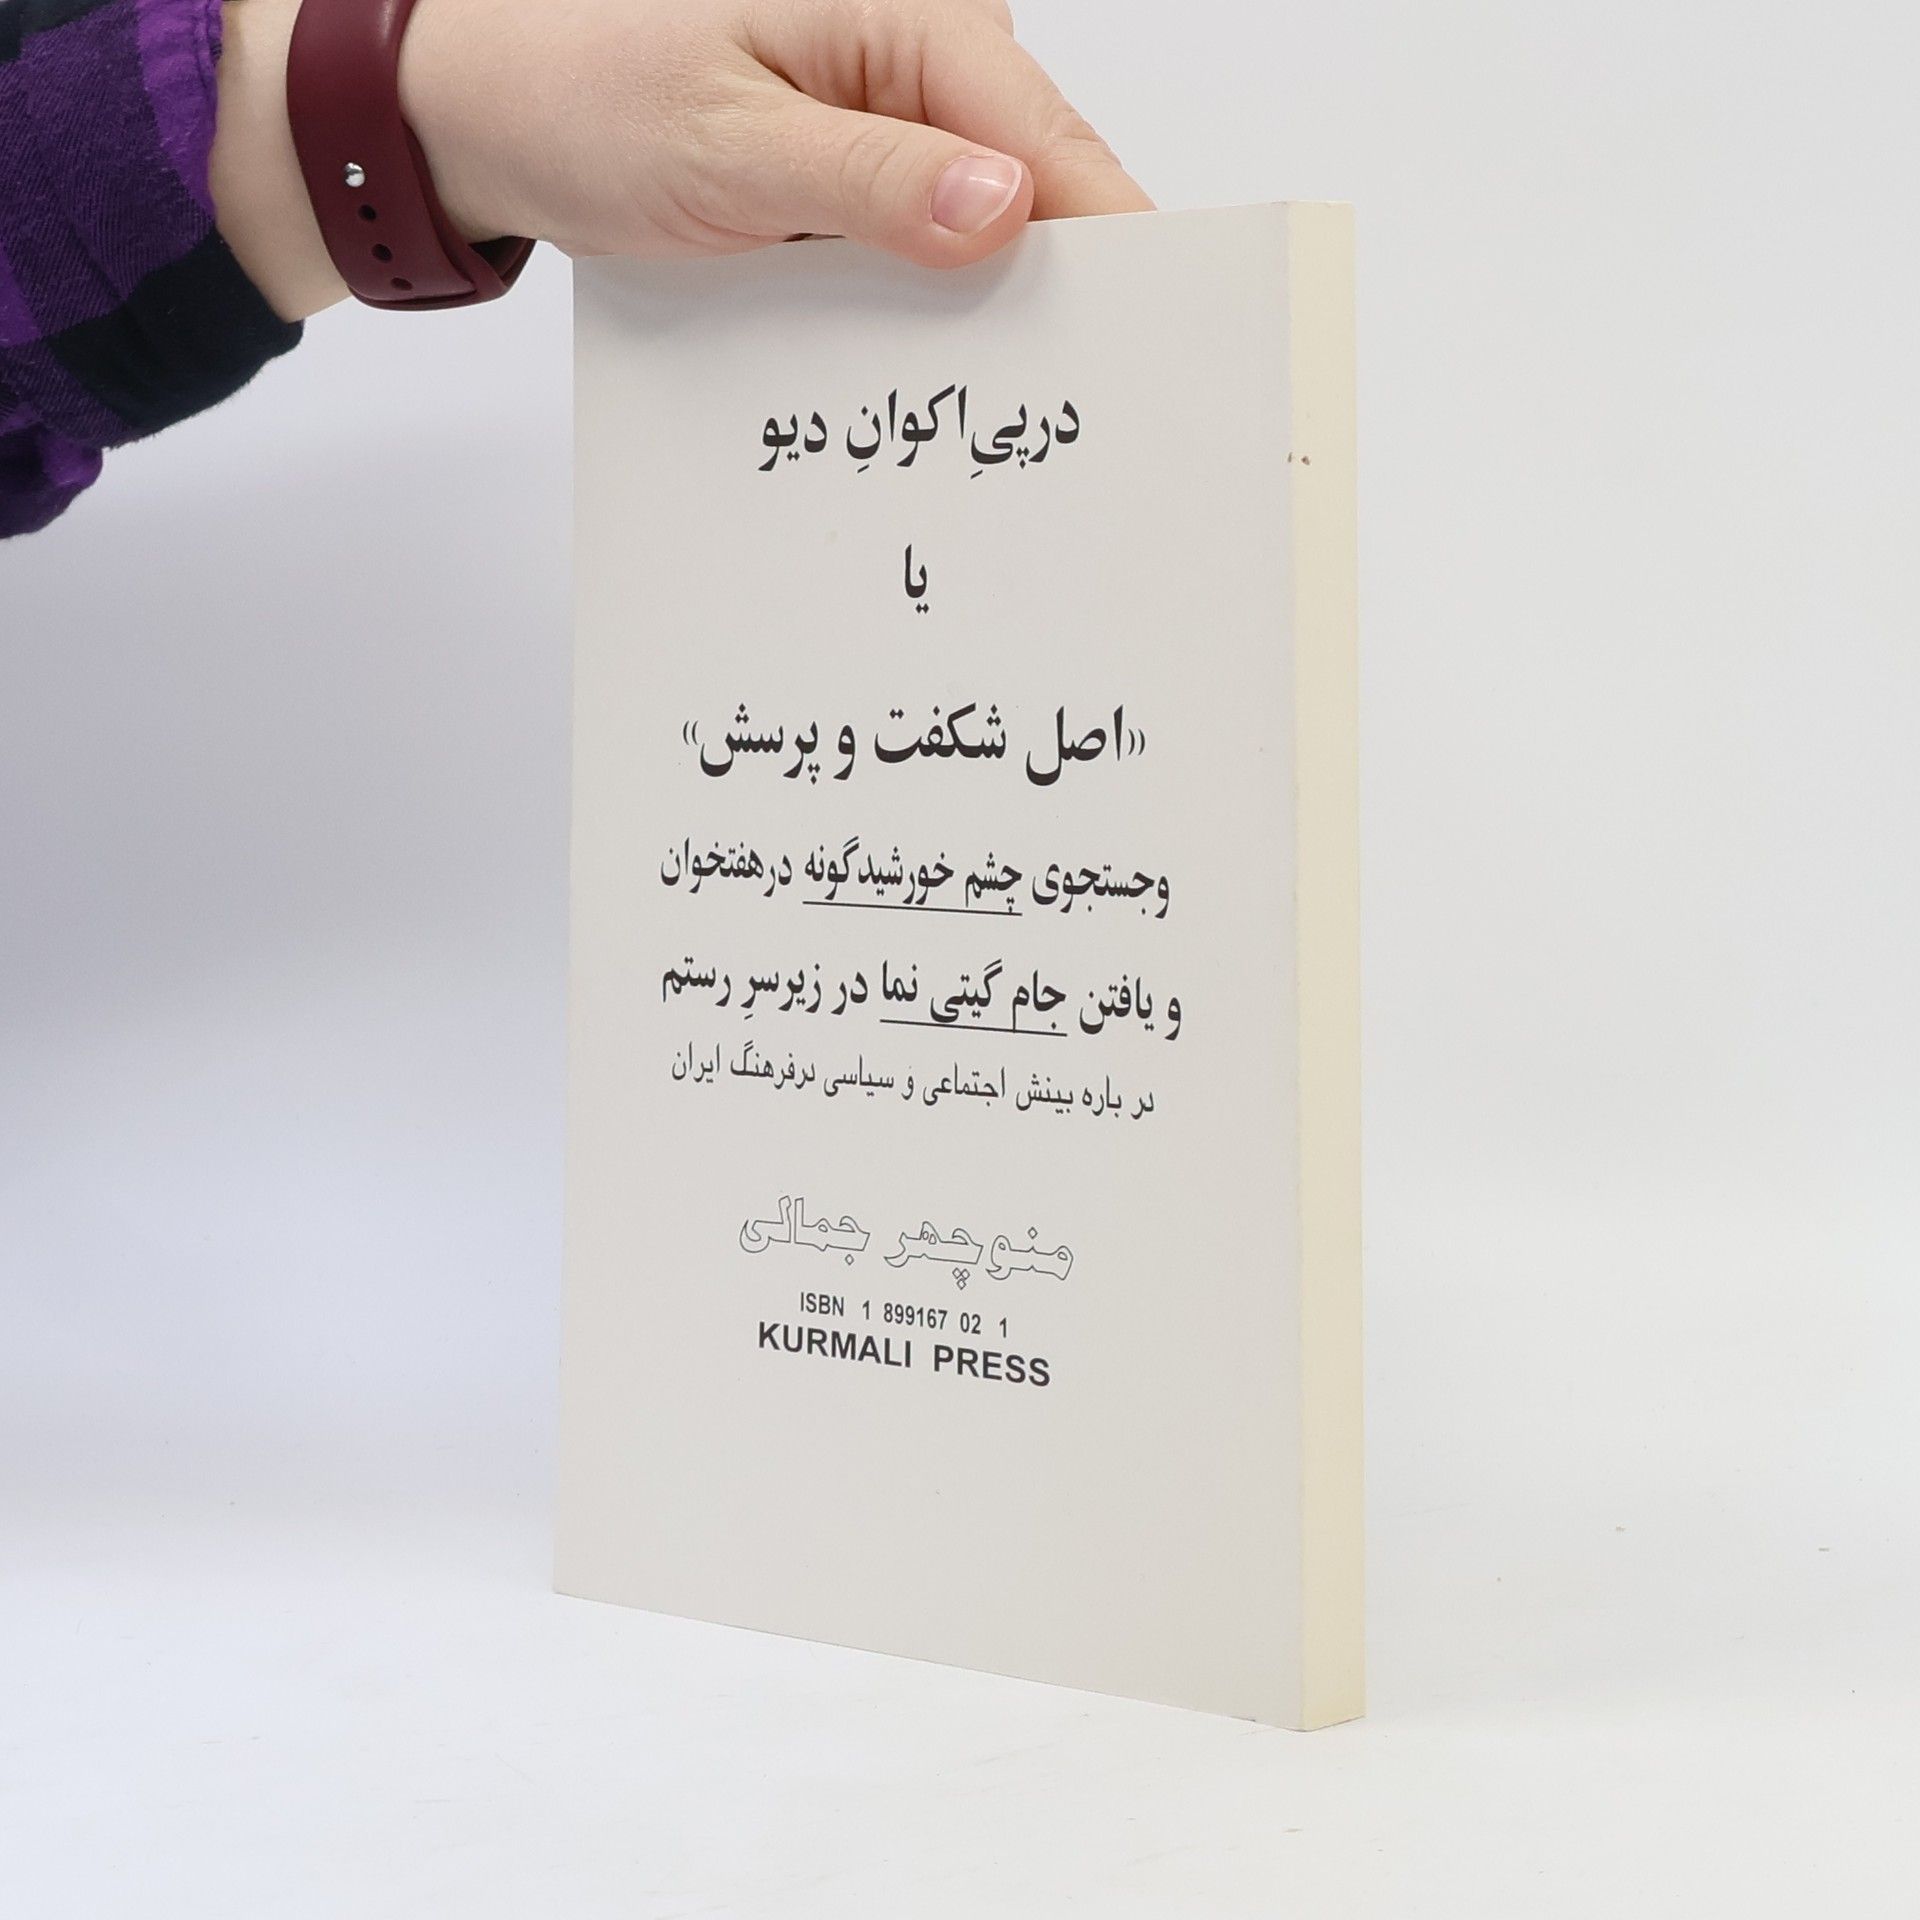 درپیِ اکوانِ دیو
یا
«اصل شکفت و پرسش»
وجستجوی چشم خورشیدگونه درهفتخوان
و یافتن جام گیتی نما در زیرسرِ رستم
در باره بینش اجتماعی و سیاسی درفرهنگ ایران
منوچهر جمالی
ISBN 1 899167 02 1
KURMALI PRESS